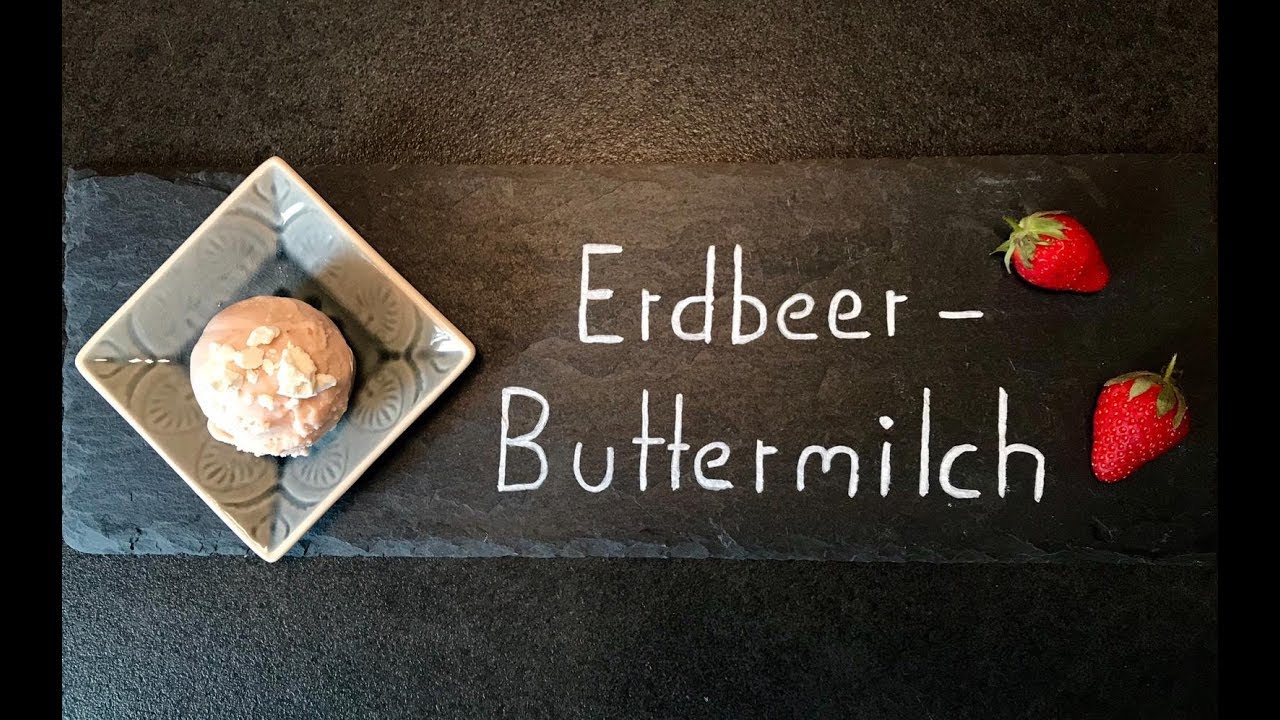 Erdbeer -
Buttermilch